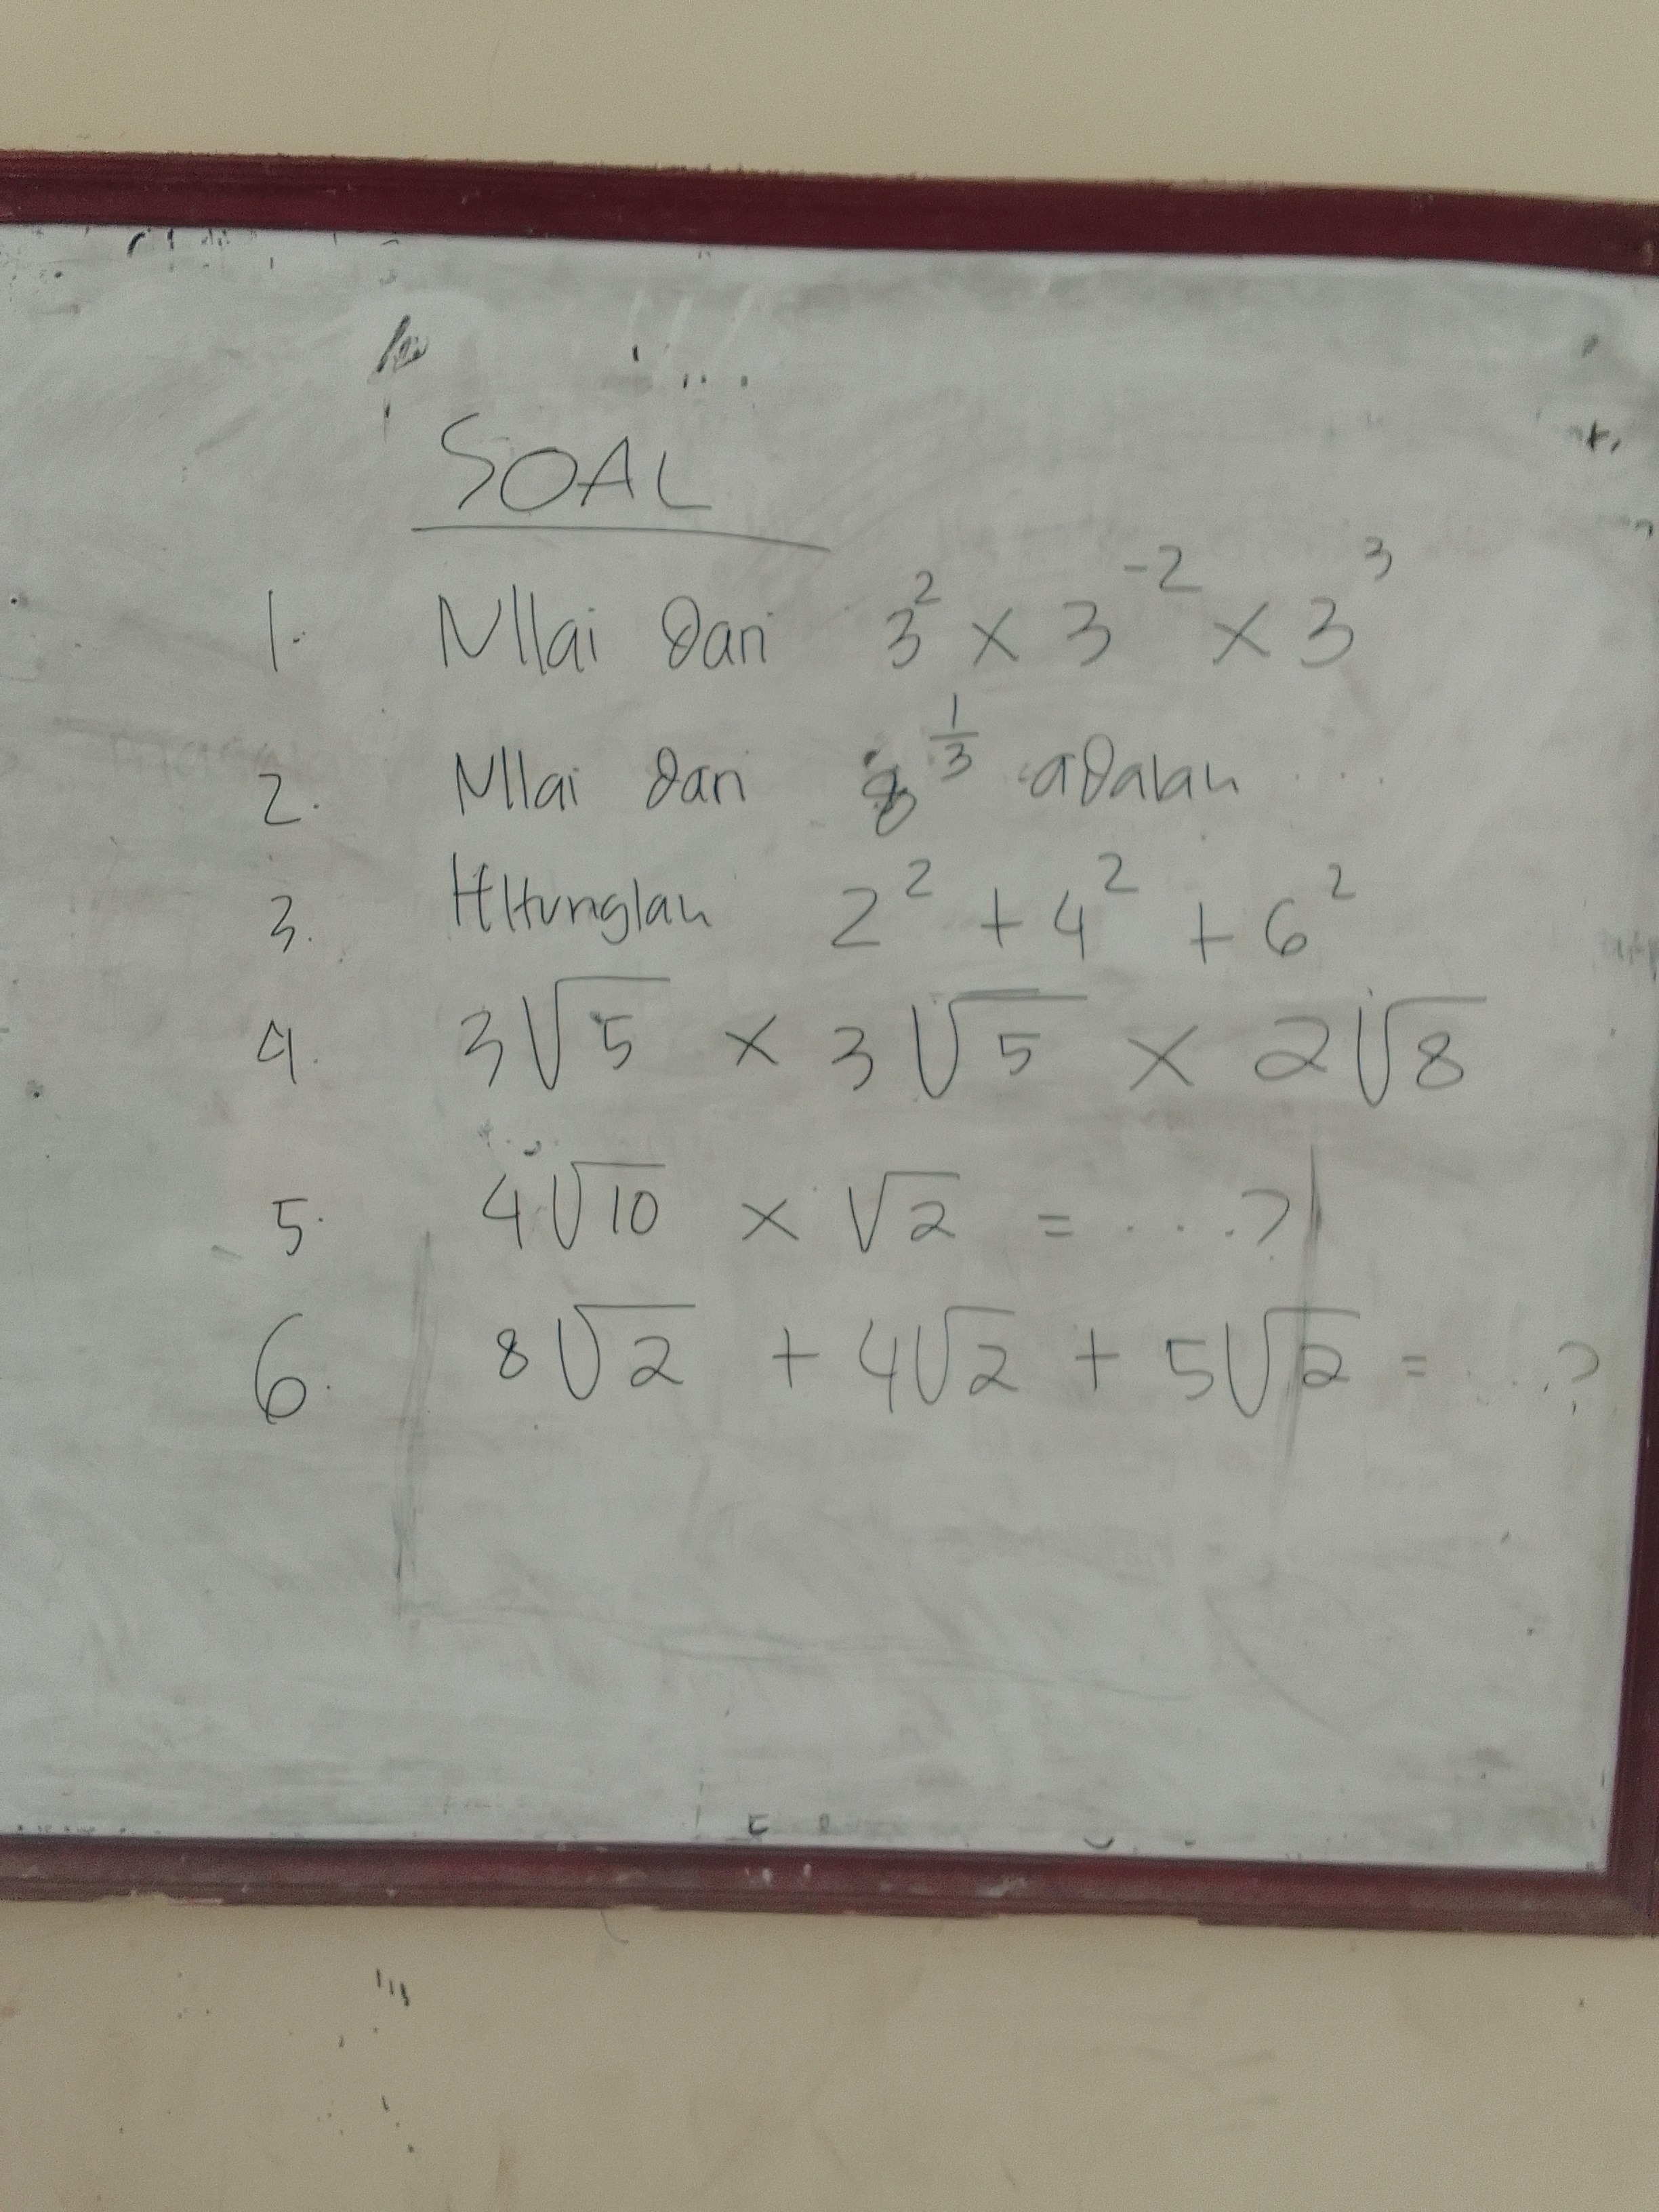 SOAL
1. NIlai dari 3² × 3⁻² × 3³
2. NIlai dari 8^{1/3} adalah ...
3. HItunglah 2² + 4² + 6²
4. 3√5 × 3√5 × 2√8
5. 4√10 × √2 = ....?
6. 8√2 + 4√2 + 5√2 = ....?